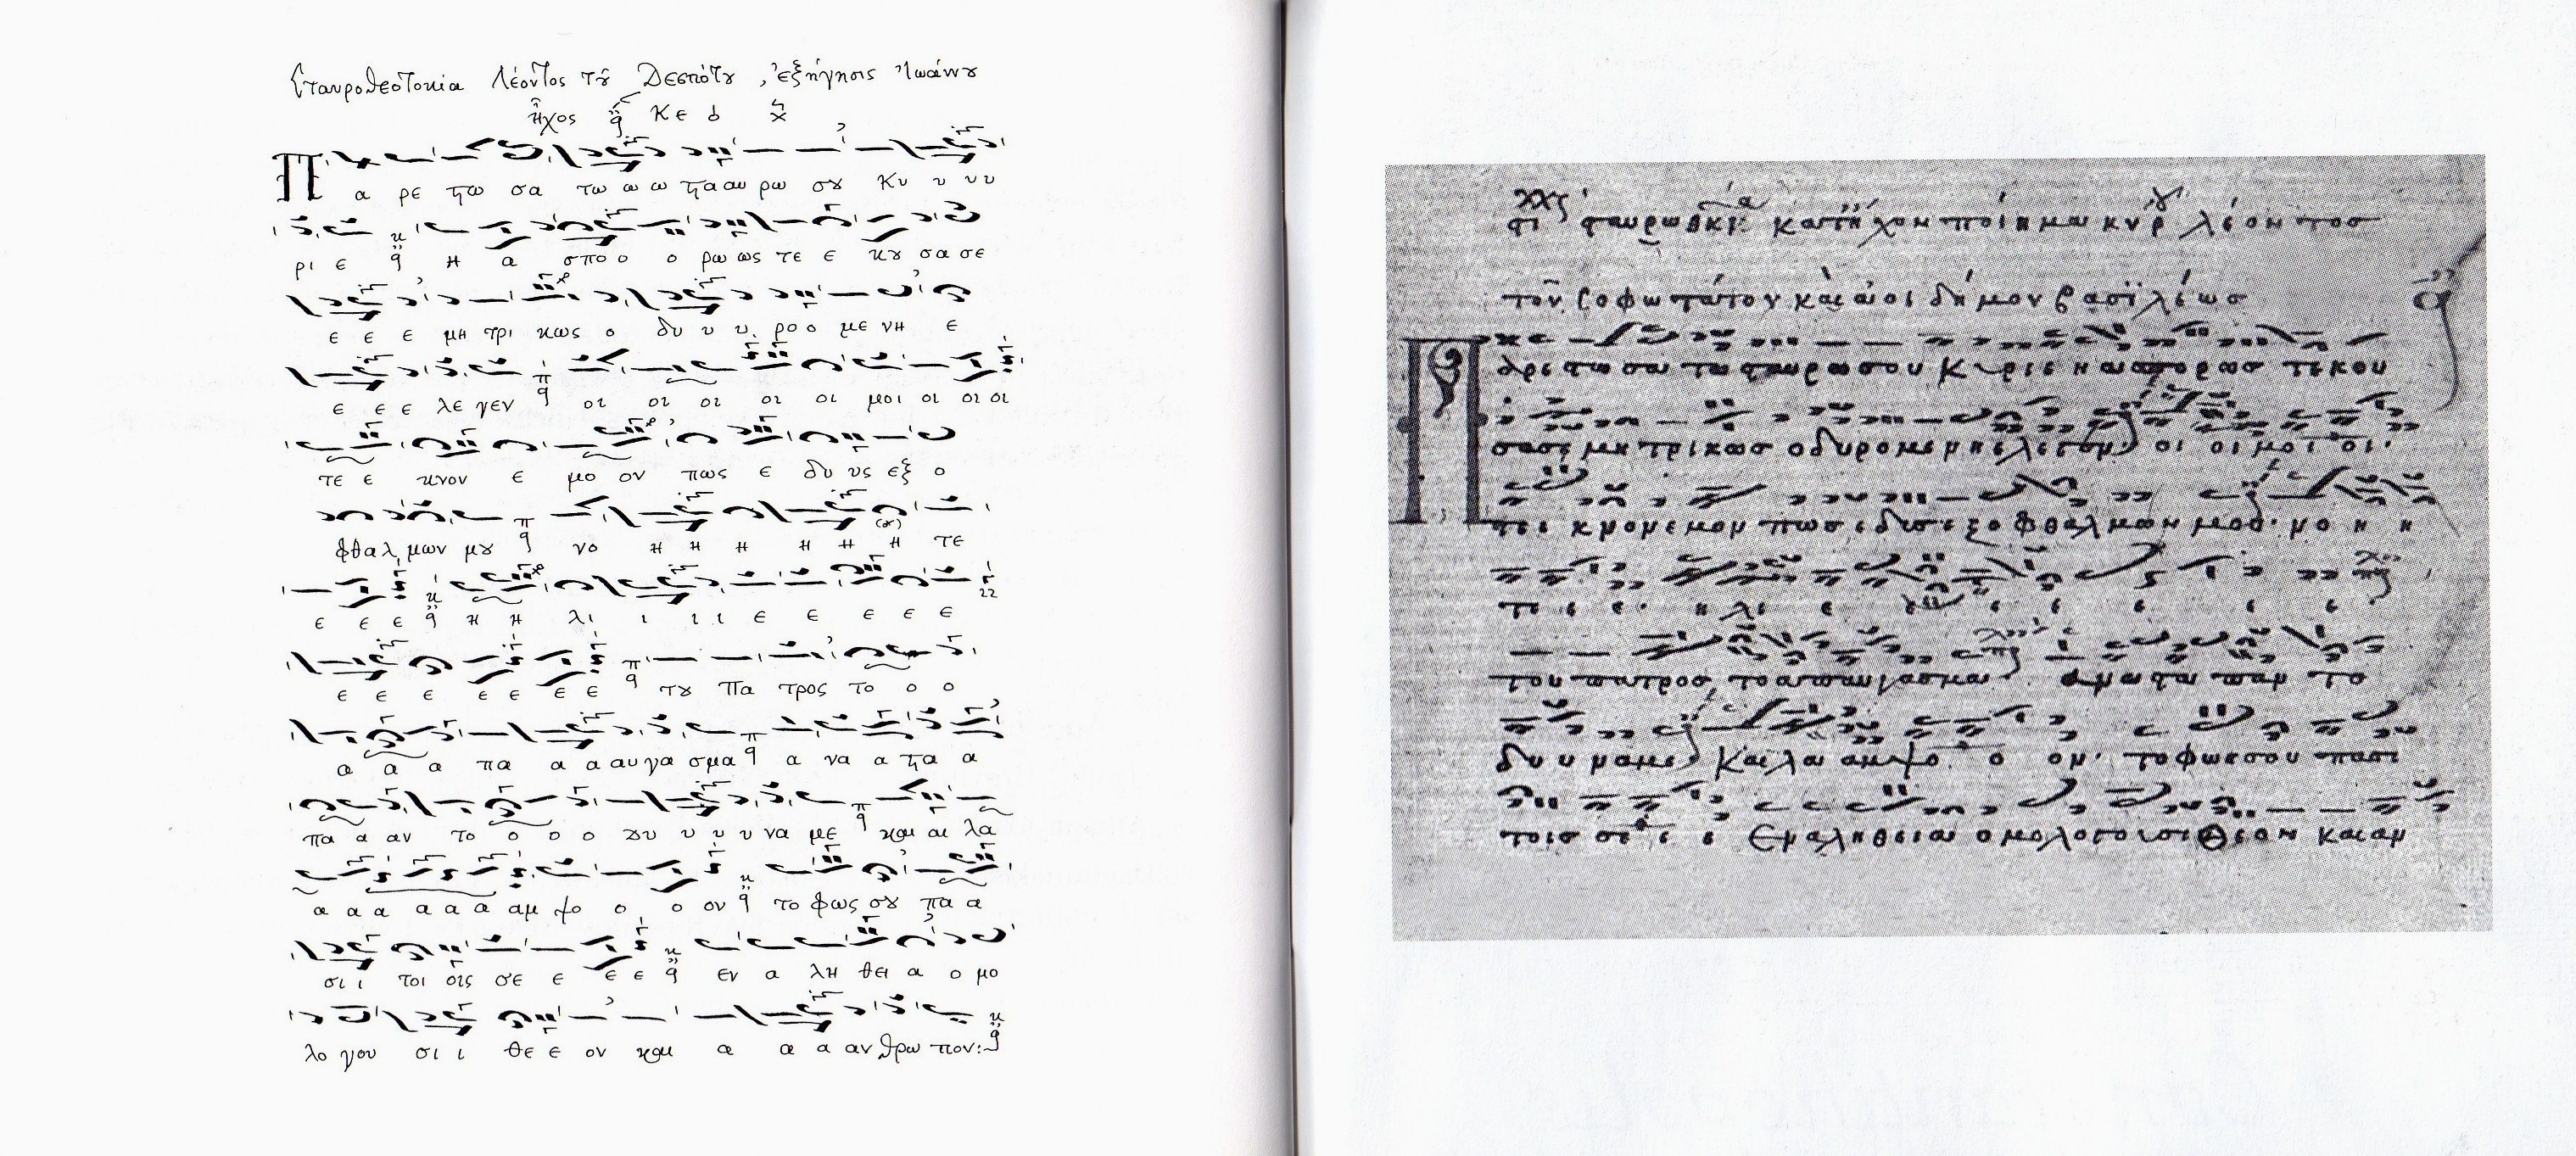 Σταυροθεοτοκία Λέοντος τȣ͂ Δεσπότȣ, ἐξήγησις Ἰωάννȣ
ἦχος q̈ Κε
Πα ρε ϛω σα τω ω ω ϛααυ ρω σȣ Κυ υ υυ
ρι ε η α σπο ο ο ρω ως τε ε κȣ σα σε
ε ε ε μη τρι κως ο δυ υ υ ρο ο με νη ε
ε ε ε λε γεν οι οι οι οι οι μοι οι οι οι
τε ε κνον ε μο ον πως ε δυ υς εξ ο
φθαλ μων μȣ νο η η η η η η τε
ε ε ε η η λι ι ι ι ε ε ε ε ε
ε ε ε ε ε ε ε τȣ Πα τρος το ο ο
α α α πα α α αυ γα σμα α να α ϛα α
πα α αν το ο ο ο δυ υ υ υ να με και αι λα
α α α α α α αμ ψο ο ο ον το φως σȣ πα α
σι ι τοι οις σε ε ε ε εν α λη θει α ο μο
λο γου σι ι θε ε ον και α α α αν θρω πον:
ϛι ϛαυρωθκι κατηχον ποίημα κυρ λέοντος
τοῦ σοφωτάτου καὶ ἀοιδήμου βασϊλέως
Παρεϛωσα τω ϛαυρω σου Κυριε η ασπορως τεκου
σασε μητρικως οδυρομενη ελεγεν οι οι μοι οι
τεε κνον εμον πως εδυς εξ οφθαλμων μου νο η η
τε ε ε η λι ε ε ε ε ε ε ε
του πατρος το απαυγασμα αναϛα παν το
δυ υ ναμε και λα αμψο ο ον το φως σου πασι
τοις σε ε ε Εν αληθεια ομολογουσι Θεον και αν